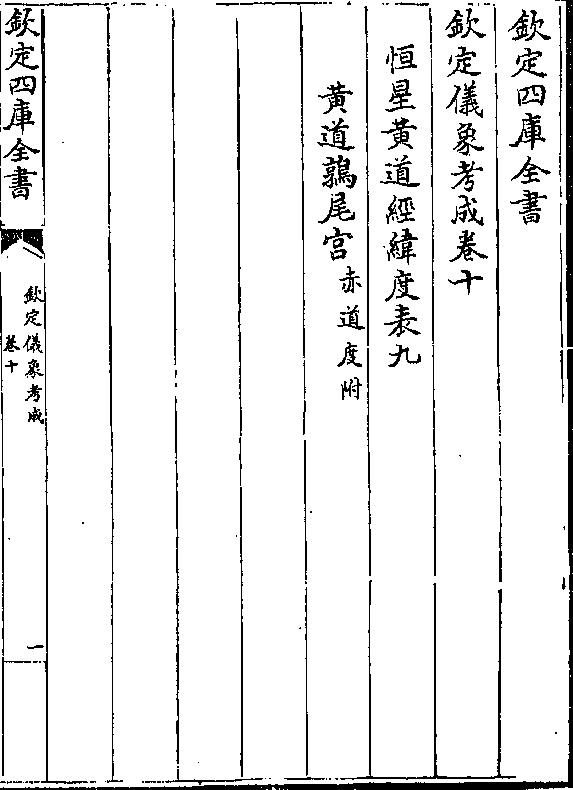 欽定四庫全書
欽定儀象考成卷十
恒星黃道經緯度表九
黃道鶉尾宮赤道度附
欽定四庫全書
欽定儀象考成
卷十
一